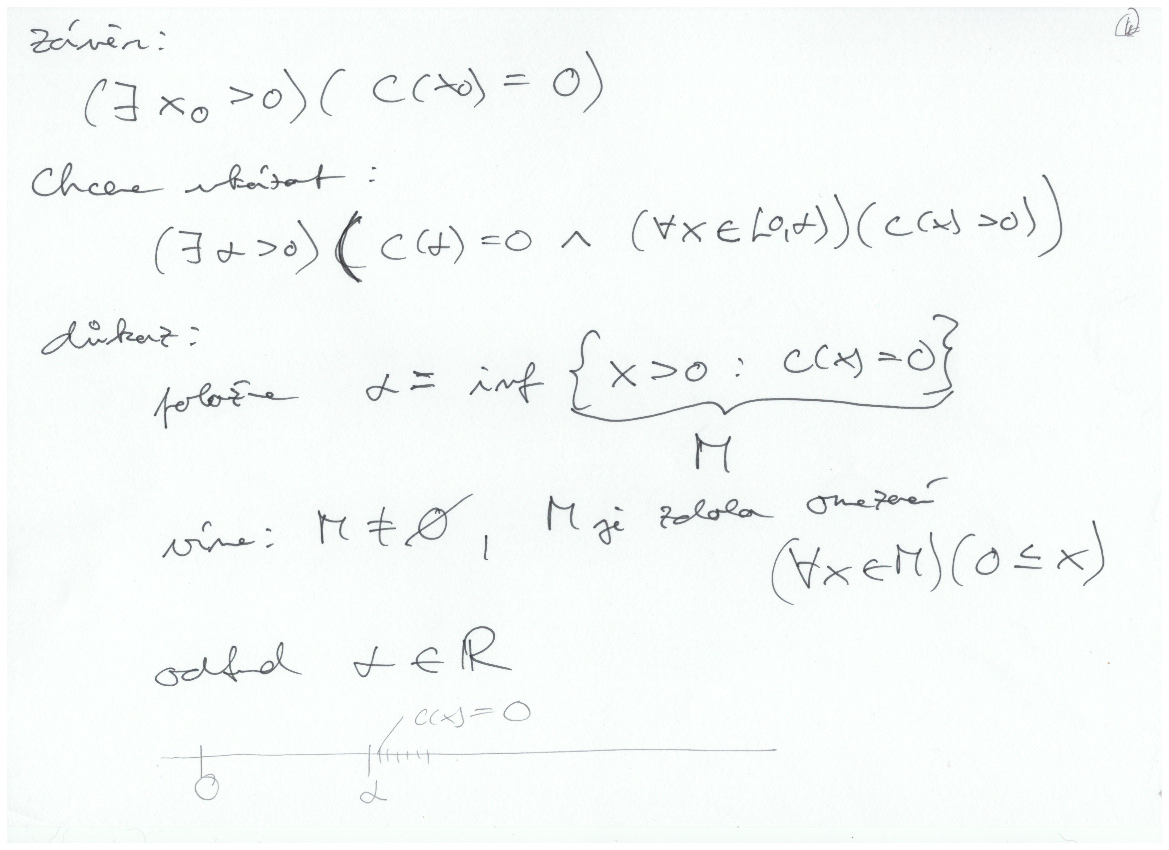 závěr:
(∃ x₀ > 0)( C(x₀) = 0)
Chceme ukázat :
(∃ α > 0) ( C(α) = 0 ∧ (∀x ∈ [0,α))( C(x) > 0))
důkaz:
položme α = inf { x > 0 : C(x) = 0}
M
víme: M ≠ ∅, M je zdola omezená
(∀x ∈ M)(0 ≤ x)
odtud α ∈ ℝ
C(x) = 0
0 α